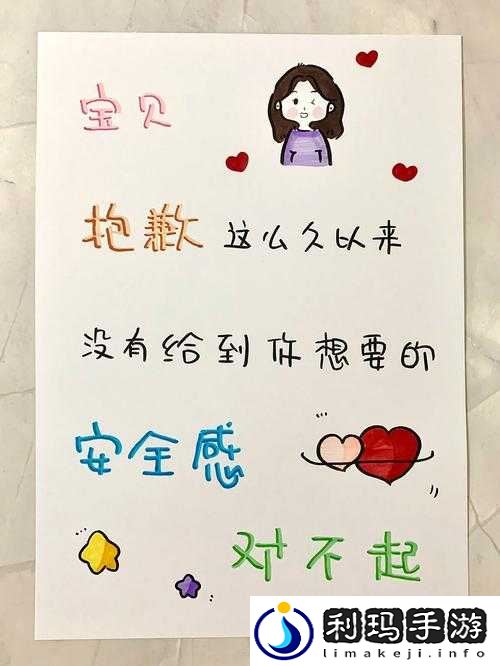 宝贝
抱歉 这么久以来
没有给到你想要的
安全感
对不起
利玛手游
limakeji.info.tv